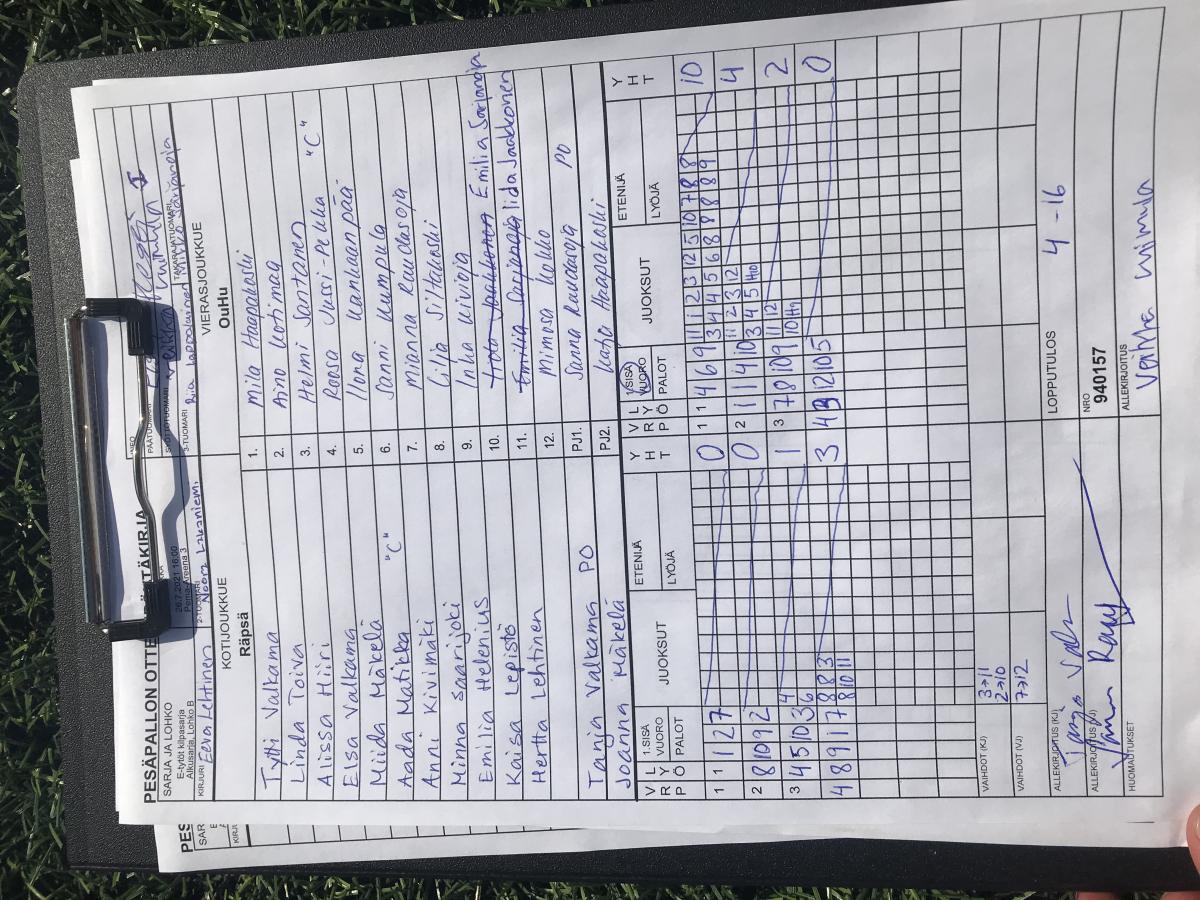 PESÄPALLON OTTE
SARJA JA LOHKO
E-tytöt kilpasarja
Alkusarja, Lohko B
26.7.2021 16:00
Perna-Areena 3
PÄÄTUOMARI
SYÖTTÖTUOMARI
TAKARAJATUOMARI
KIRJURI Eeva Lehtinen
2-TUOMARI Noora
3-TUOMARI
KOTIJOUKKUE
Räpsä
VIERASJOUKKUE
OuHu
Tytti Valkama
1. Mila Haapakoski
Linda Toiva
2. Aino Kotimaa
Alissa Hiiri
3. Helmi Santanen "C"
Elsa Valkama
4. Roosa Jussi-Pekka
Miida Mäkelä
5. Iona Kankaanpää
Aada Matikka "C"
6. Sanni Kumpula
Anni Kivimäki
7. Mianna Raudasoja
Minna Saarijoki
8. Lilja Siltakoski
Emilia Helenius
9. Inka Kivioja
Kaisa Lepistö
10. Emilia Sarjanoja
Hertta Lehtinen
11. Iida Jaakkonen
12. Mimosa Kokko
Tanja Valkama PO
PJ1. Sanna Raudasoja PO
Joanna Mäkelä
PJ2. Katja Haapakoski
V R P L Y Ö 1.SISÄ VUORO PALOT JUOKSUT ETENIJÄ LYÖJÄ Y H T
V R P L Y Ö 1.SISÄ VUORO PALOT JUOKSUT ETENIJÄ LYÖJÄ Y H T
1 1 1 2 7 0
1 1 4 6 9 11 1 2 3 12 5 10 7 8 8 10
3 4 5 6 8 8 8 8 9
2 8 10 9 2 0
2 1 11 4 10 11 2 3 12 4
3 4 5 H10
3 4 5 10 3 4 1
6
3 7 8 10 9 11 12 2
10 H9
4 8 9 1 7 8 8 3 3
8 10 11
12 10 5 0
VAIHDOT (KJ) 3→11
2→10
VAIHDOT (VJ) 7→12
ALLEKIRJOITUS (KJ)
LOPPUTULOS 4 - 16
ALLEKIRJOITUS (VJ)
NRO
940157
HUOMAUTUKSET
ALLEKIRJOITUS